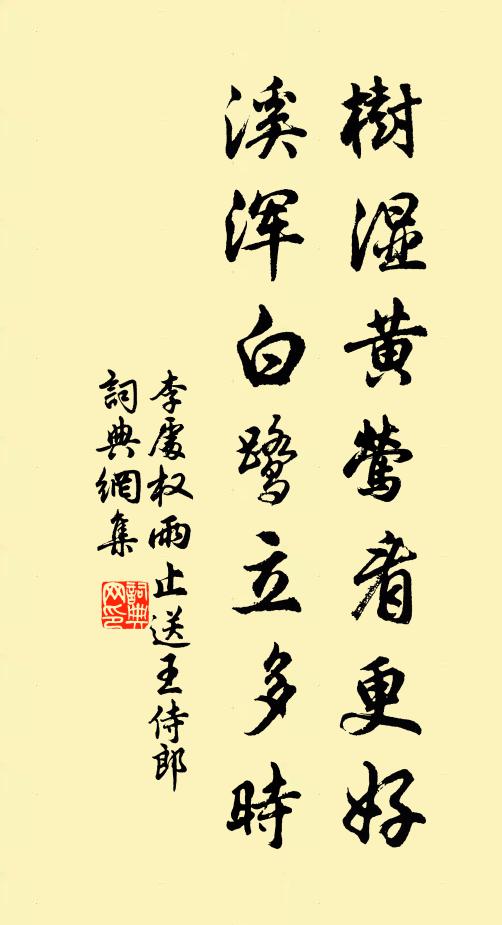 樹湿黄鶯看更好
溪浑白鷺立多時
李處权雨止送王侍郎
詞典網集
詞典
网印